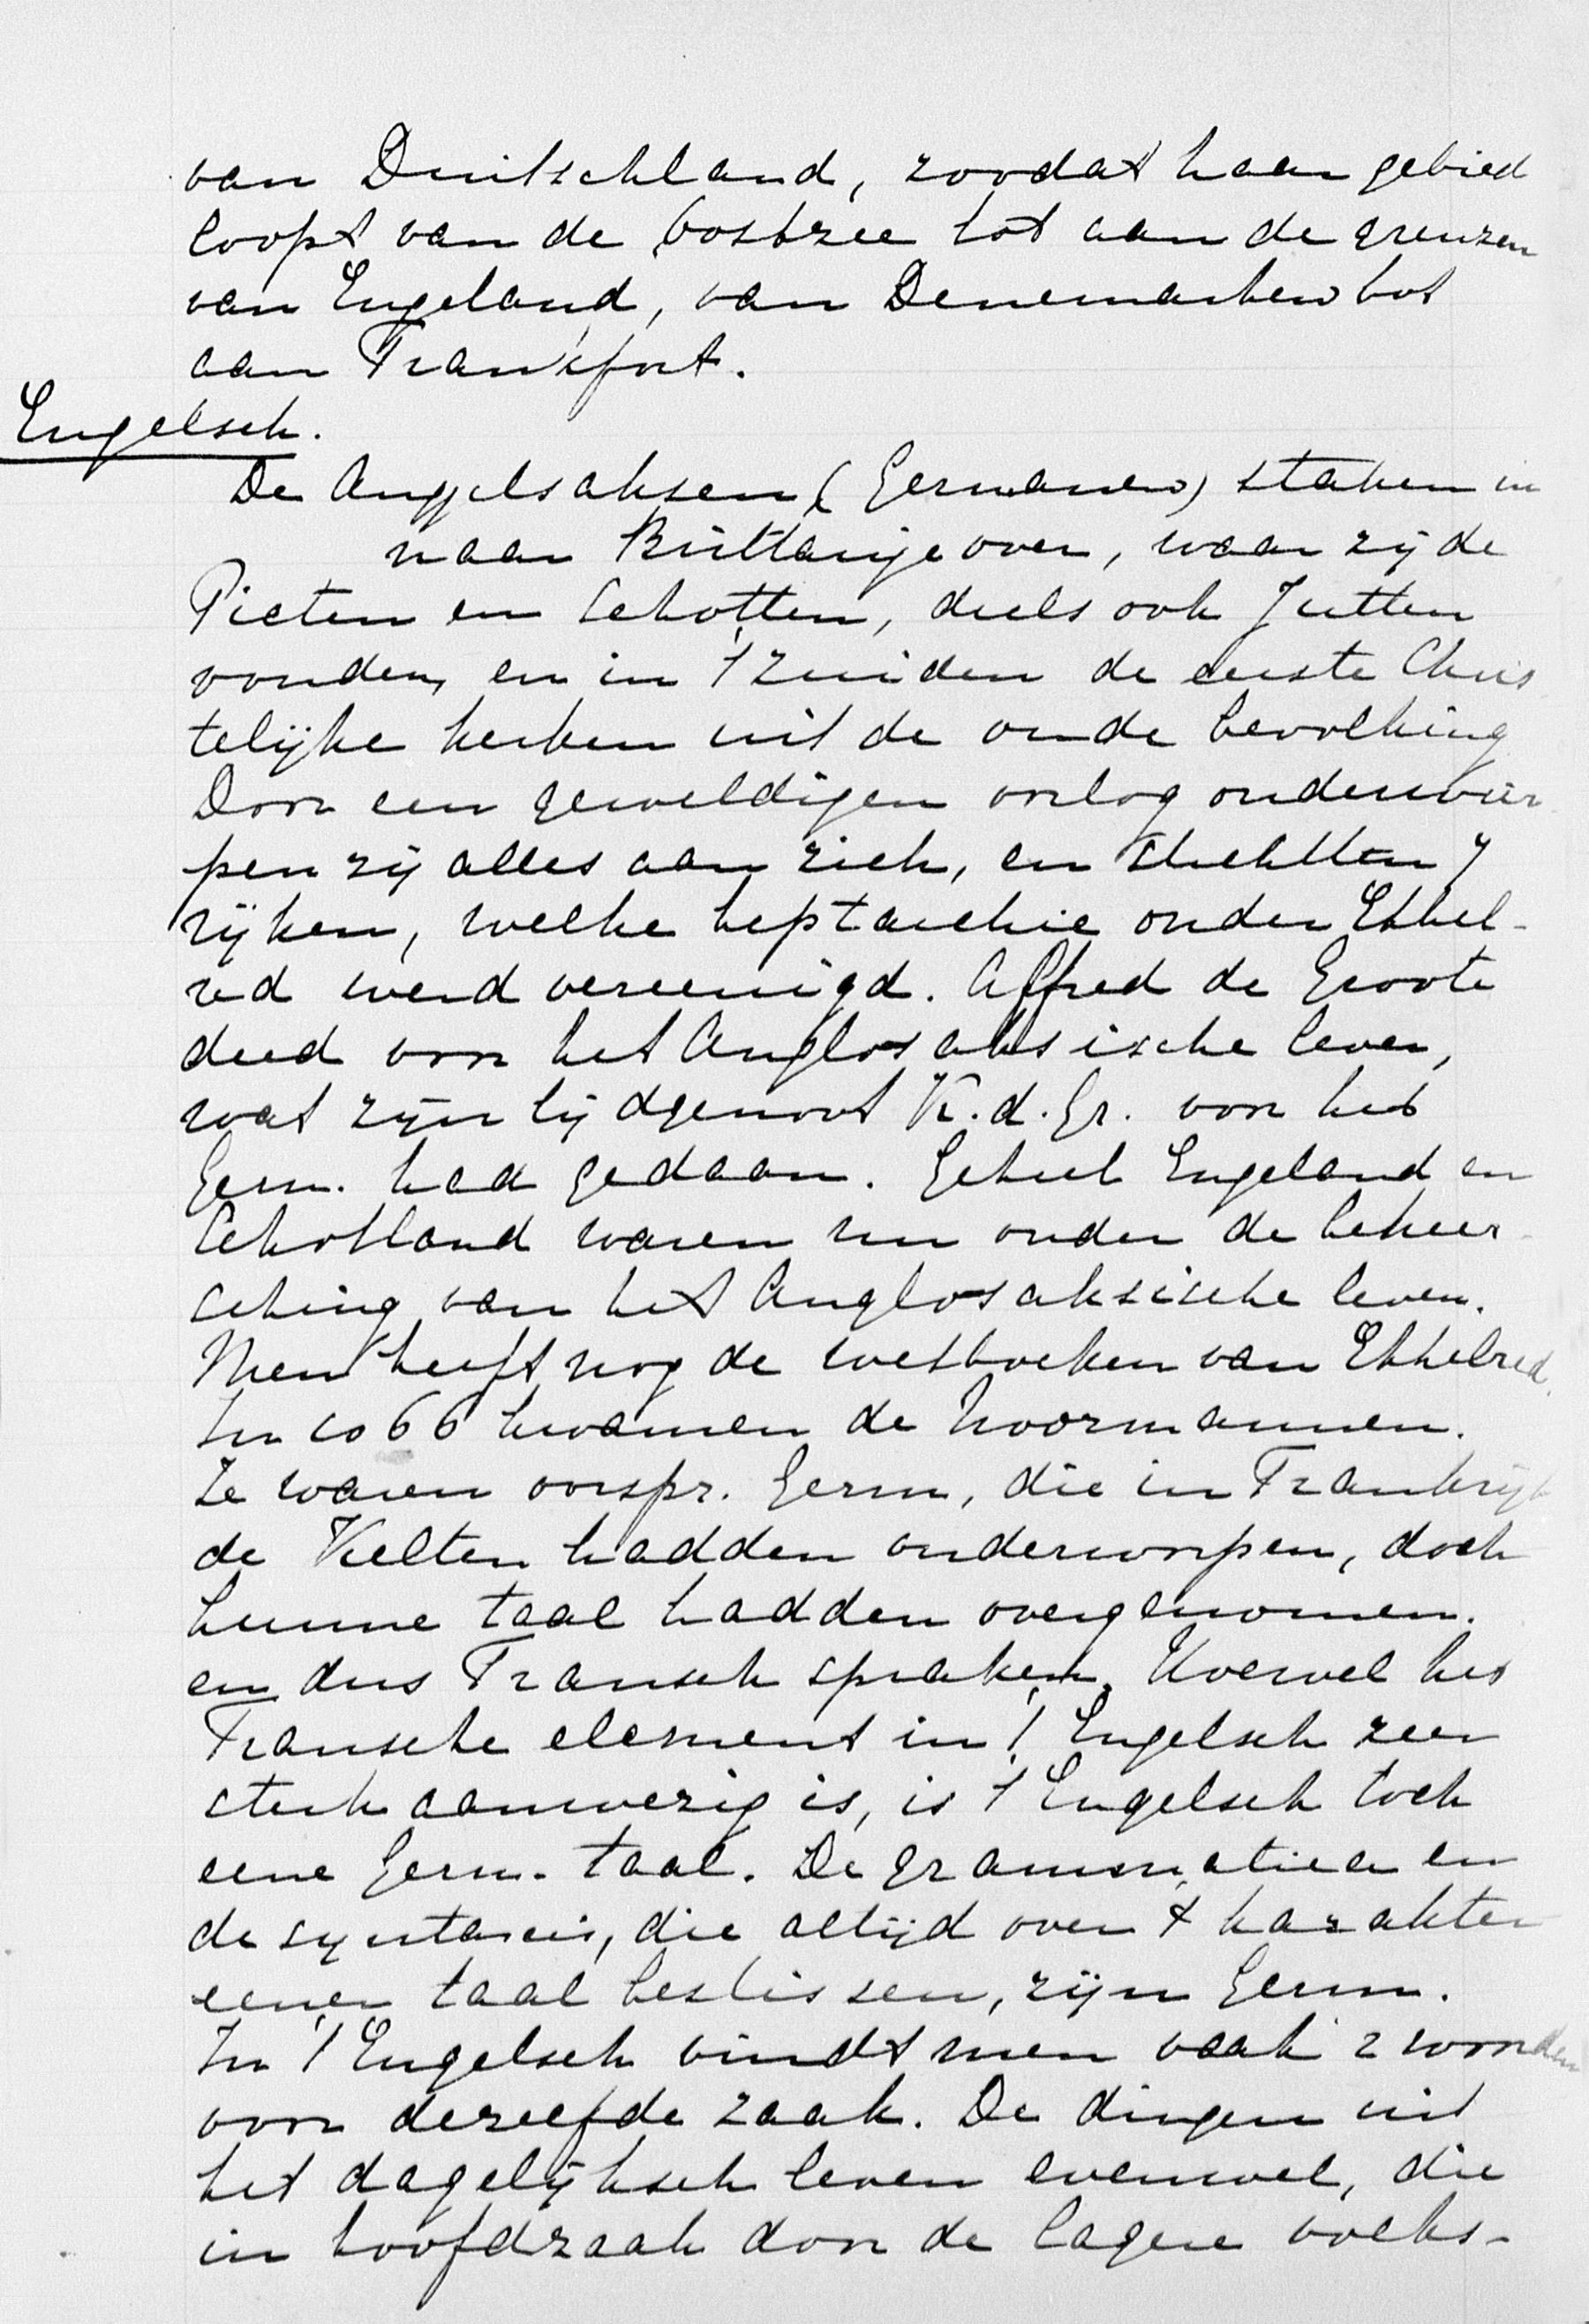 van Duitschland, zoodat haar gebied
loopt van de Oostzee tot aan de grenzen
van Engeland, van Denemarken tot
aan Frankfort.
Engelsch.
De Angelsaksen (Germanen) staken in
naar Brittanje over, waar zij de
Picten en Schotten, deels ook Jutten
vonden, en in 't Zuiden de eerste Chris
telijke kerken uit de oude bevolking
Door een geweldigen oorlog onderwier
pen zij alles aan zich, en stichtten 7
rijken, welke heptarchie onder Ethel-
red werd vereenigd. Alfred de Groote
deed voor het Anglosaksische leven,
wat zijn tijdgenoot K. d. Gr. voor het
Germ. had gedaan. Geheel Engeland en
Schotland waren nu onder de beheer
sching van het Anglosaksische leven.
Men heeft nog de wetboeken van Ethelred.
In 1066 kwamen de Noormannen.
Ze waren oorspr. Germ, die in Frankrijk
de Kelten hadden onderworpen, doch
hunne taal hadden overgenomen.
en dus Fransch spraken. Hoewel het
Fransche element in 't Engelsch zeer
sterk aanwezig is, is 't Engelsch toch
eene Germ. taal. De grammatica en
de syntaxis, die altijd over 't karakter
eener taal beslissen, zijn Germ.
In 't Engelsch vindt men vaak 2 woorden
voor dezelfde zaak. De dingen uit
het dagelijksch leven evenwel, die
in hoofdzaak door de lagere volks-